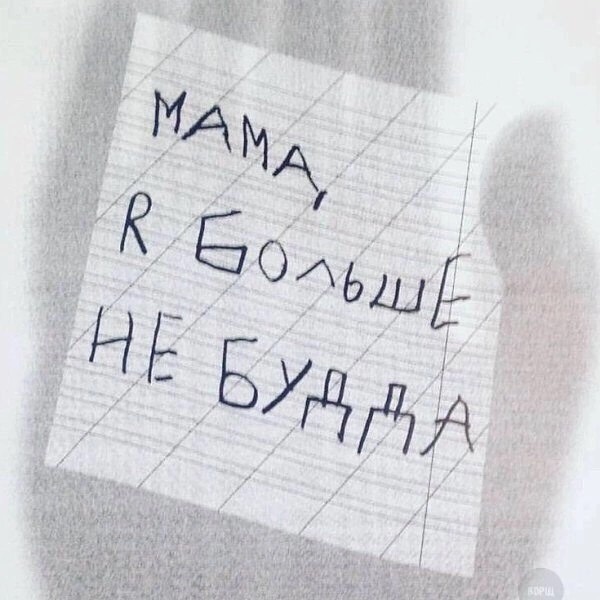 МАМА,
R БОЛЬШЕ
НЕ БУДДА
КОРШ